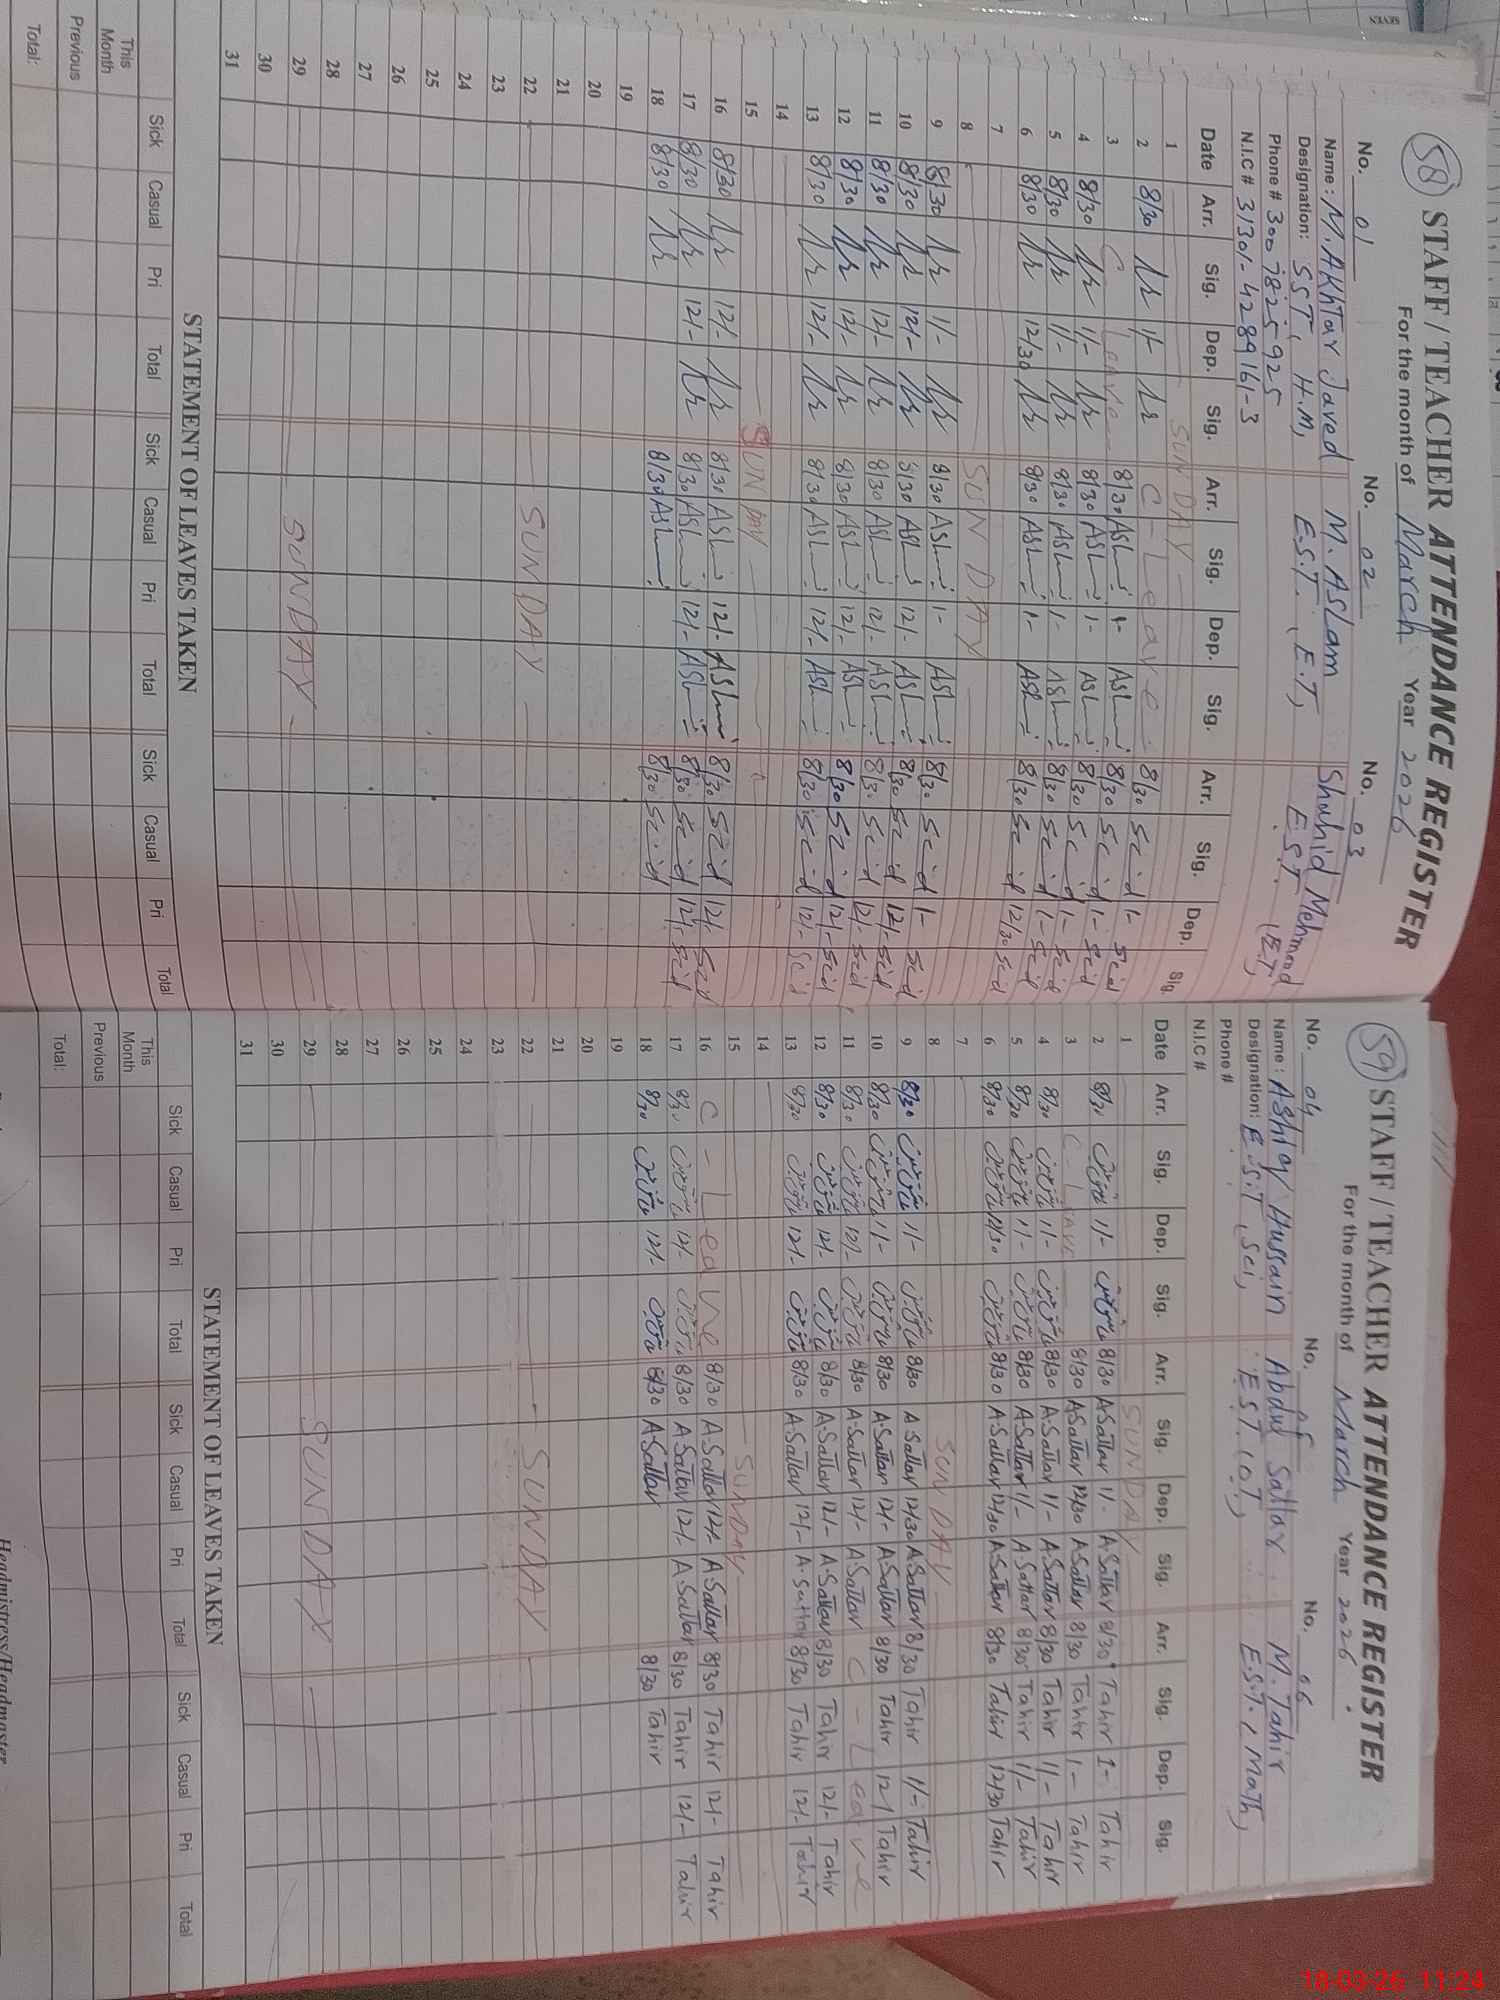 SEVEN
58 STAFF / TEACHER ATTENDANCE REGISTER
For the month of March Year 2026
No. 01 No. 02 No. 03
Name : M. Akhtar Javed M. Aslam Shahid Mehmood
Designation: SST, H.M, E.S.T, E.T, E.S.T (E.T)
Phone # 300 7825925
N.I.C # 31301-4289161-3
Date Arr. Sig. Dep. Sig. Arr. Sig. Dep. Sig. Arr. Sig. Dep. Sig.
1 SUNDAY
2 8/30 1/- C-Leave 8/30 1-
3 C Leave 8/30 1- 8/30 1-
4 8/30 1/- 8/30 1- 8/30 1-
5 8/30 1/- 8/30 1- 8/30 1-
6 8/30 12/30 8/30 1- 8/30 12/30
7
8 SUNDAY
9 8/30 1/- 8/30 1- 8/30 1-
10 8/30 12/- 8/30 12/- 8/30 12/-
11 8/30 12/- 8/30 12/- 8/30 12/-
12 8/30 12/- 8/30 12/- 8/30 12/-
13 8/30 12/- 8/30 12/- 8/30 12/-
14
15 SUNDAY
16 8/30 12/- 8/30 12/- 8/30 12/-
17 8/30 12/- 8/30 12/- 8/30 12/-
18 8/30 8/30 8/30
19
20
21
22 SUNDAY
23
24
25
26
27
28
29 SUNDAY
30
31
STATEMENT OF LEAVES TAKEN
Sick Casual Pri Total Sick Casual Pri Total Sick Casual Pri Total
This Month
Previous
Total:
59 STAFF / TEACHER ATTENDANCE REGISTER
For the month of March Year 2026
No. 04 No. 05 No. 06
Name : Ashiq Hussain Abdul Sattar M. Tahir
Designation: E.S.T, Sci, E.S.T. (O.T), E.S.T, Math,
Phone #
N.I.C #
Date Arr. Sig. Dep. Sig. Arr. Sig. Dep. Sig. Arr. Sig. Dep. Sig.
1 SUNDAY
2 8/30 1/- 8/30 A.Sattar 1/- A.Sattar 8/30 Tahir 1- Tahir
3 C-Leave 8/30 A.Sattar 12/30 A.Sattar 8/30 Tahir 1- Tahir
4 8/30 1/- 8/30 A.Sattar 1/- A.Sattar 8/30 Tahir 1/- Tahir
5 8/30 1/- 8/30 A.Sattar 1/- A.Sattar 8/30 Tahir 1/- Tahir
6 8/30 12/30 8/30 A.Sattar 12/30 A.Sattar 8/30 Tahir 12/30 Tahir
7
8 SUNDAY
9 8/30 1/- 8/30 A Sattar 12/30 A.Sattar 8/30 Tahir 1/- Tahir
10 8/30 1/- 8/30 A.Sattar 12/- A.Sattar 8/30 Tahir 12/ Tahir
11 8/30 12/- 8/30 A.Sattar 12/- A.Sattar C-Leave
12 8/30 12/- 8/30 A.Sattar 12/- A.Sattar 8/30 Tahir 12/- Tahir
13 8/30 12/- 8/30 A.Sattar 12/- A.Sattar 8/30 Tahir 12/- Tahir
14
15 SUNDAY
16 C-Leave 8/30 A.Sattar 12/- A.Sattar 8/30 Tahir 12/- Tahir
17 8/30 12/- 8/30 A.Sattar 12/- A Sattar 8/30 Tahir 12/- Tahir
18 8/30 12/- 8/30 A.Sattar 8/30 Tahir
19
20
21
22 SUNDAY
23
24
25
26
27
28
29 SUNDAY
30
31
STATEMENT OF LEAVES TAKEN
Sick Casual Pri Total Sick Casual Pri Total Sick Casual Pri Total
This Month
Previous
Total:
Headmistress/Headmaster
18-03-26 11:24